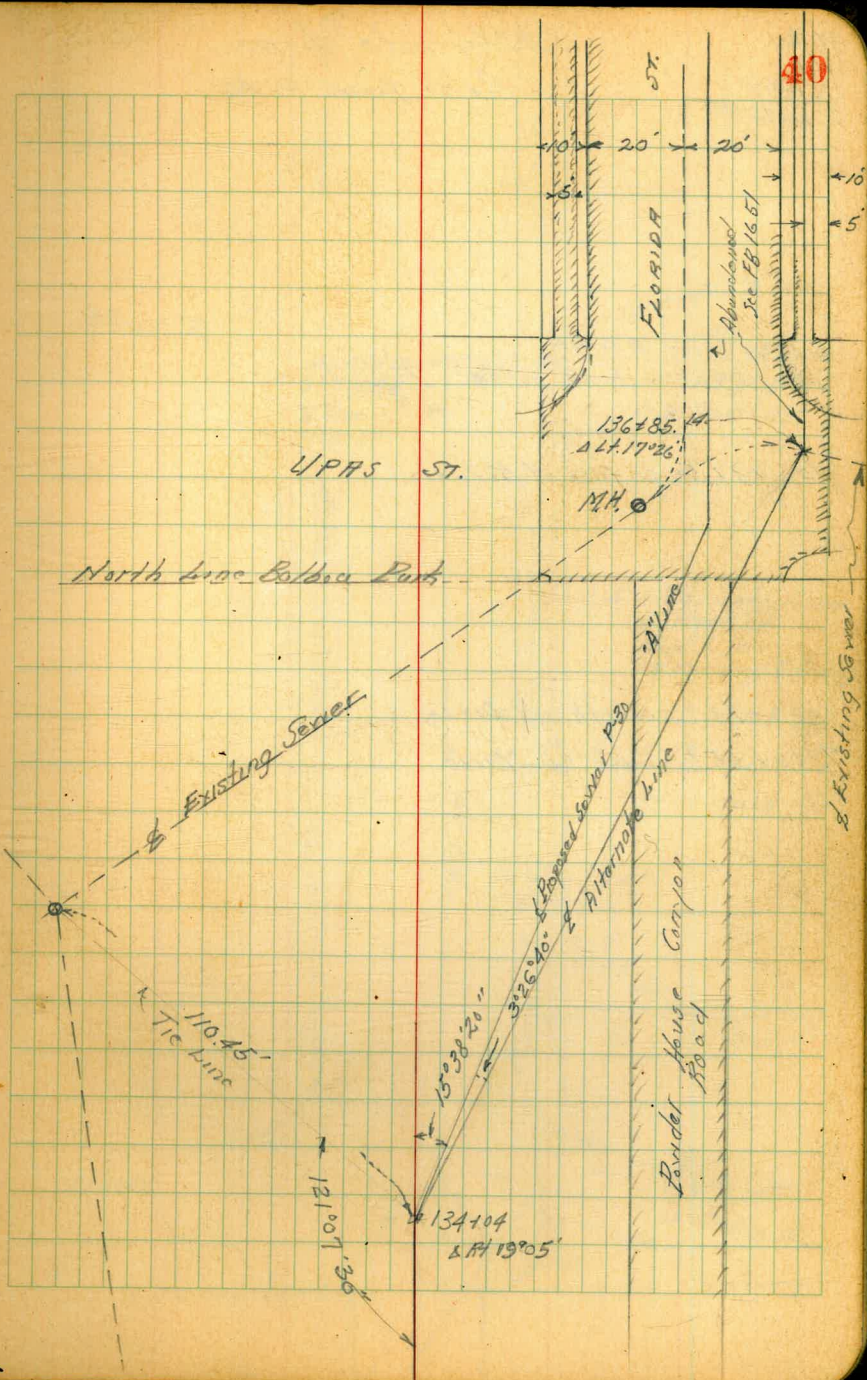 40
ST.
10'
20'
20'
10'
5'
5'
FLORIDA
Abandoned
See FB 1651
136+85.14
Δ Lt. 17°26'
UPAS ST.
M.H.
North Line Balboa Park
"A" Line
℄ Existing Sewer
℄ Existing Sewer
℄ Proposed Sewer P-30
℄ Alternate Line
3°26'40"
15°38'20"
Powder House Canyon
Road
110.45'
Tie Line
121°07'36"
134+04
Δ Rt 19°05'